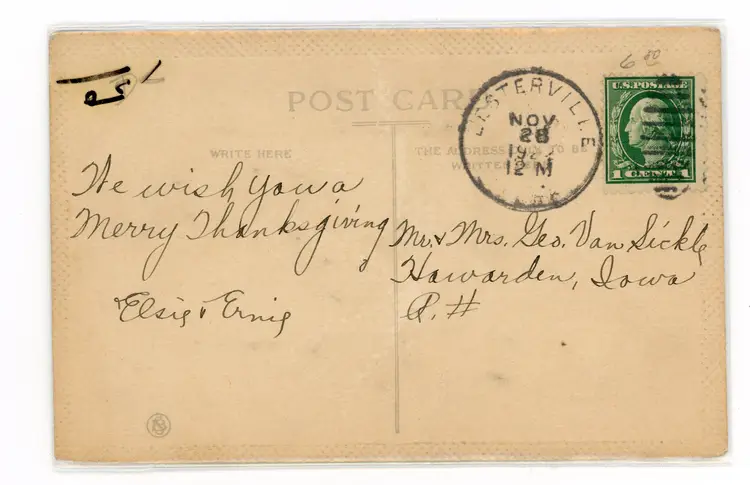 6 00
POST CARD
LESTERVILLE
NOV
28
12 M
U.S. POSTAGE
1 CENTS 1
WRITE HERE
THE ADDRESS ONLY TO BE
WRITTEN HERE
We wish you a
Merry Thanksgiving
Elsie & Ernie
Mr. & Mrs. Geo. Van Sickle
Hawarden, Iowa
R. #